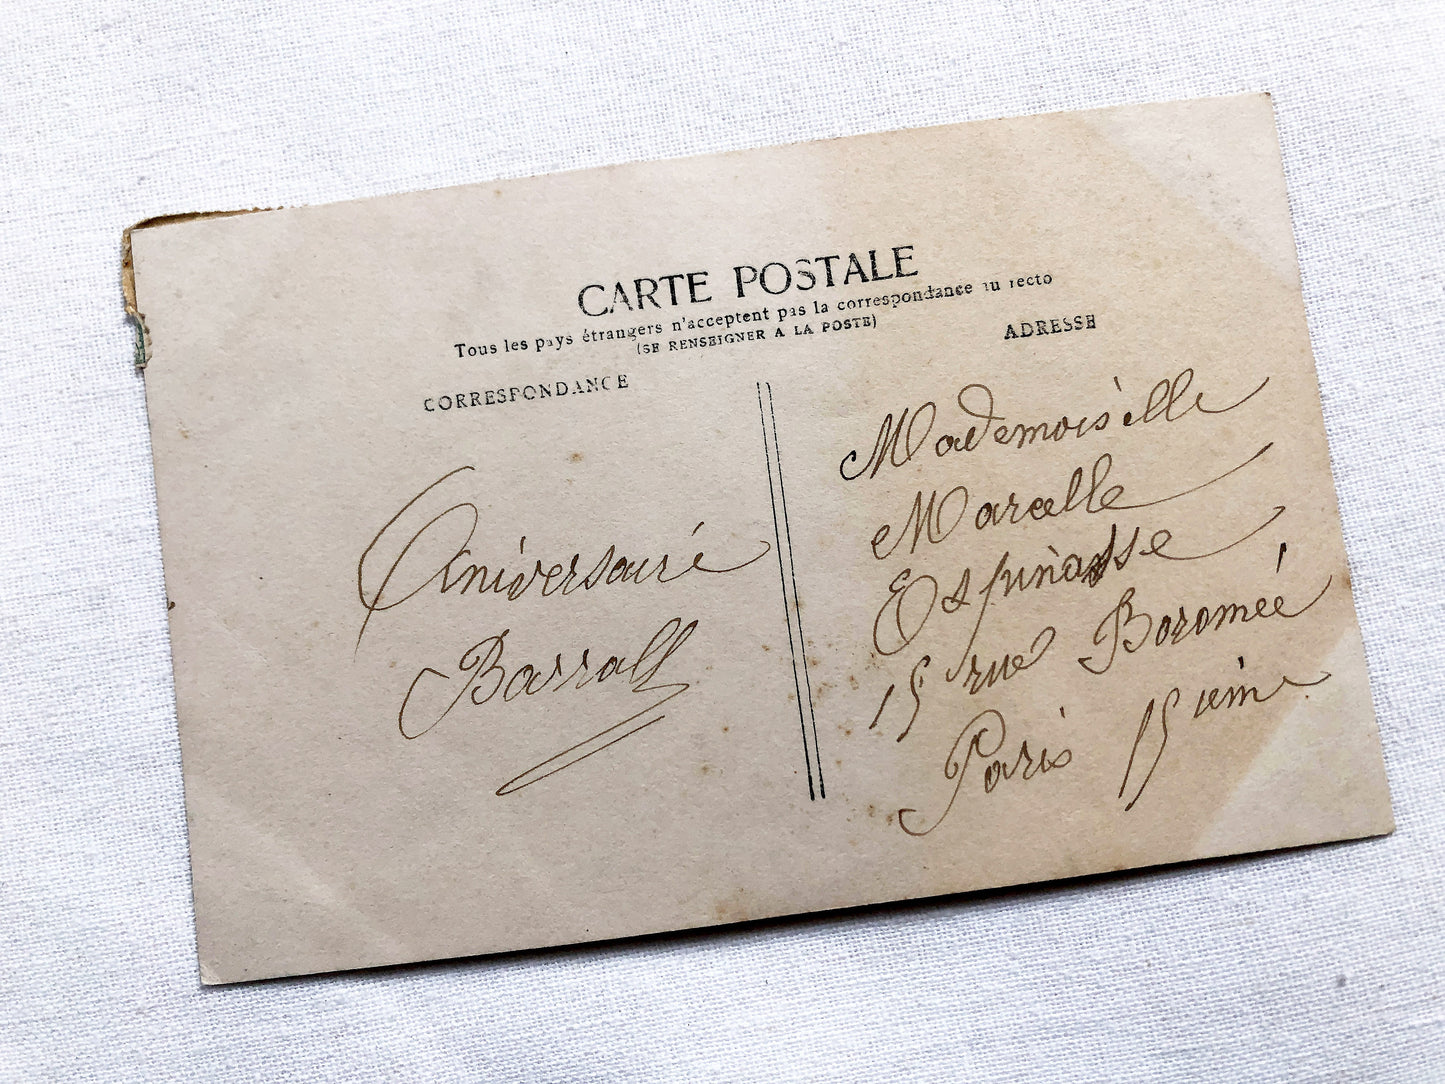 CARTE POSTALE
Tous les pays étrangers n'acceptent pas la correspondance au recto
(SE RENSEIGNER A LA POSTE)
CORRESPONDANCE
ADRESSE
Aniversairé
Barrall
Mademoiselle
Marcelle
Espinasse
15 rue Boromée
Paris 15 ièm